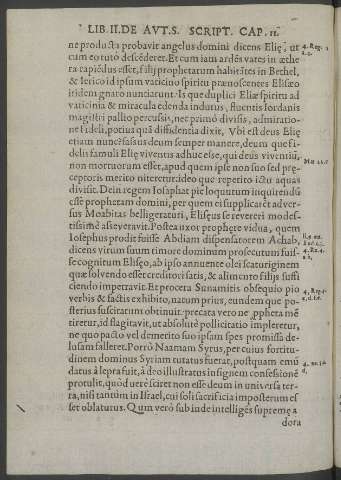 LIB.II.DE AVT.S. SCRIPT. CAP. II.
ne producta probavit angelus domini dicens Elię, ut
cum eo tutò descēderet. Et cum iam ardēs vates in æthe
ra rapiēdus esset, filij prophetarum habitātes in Bethel,
& Ierico id ipsum vaticino spiritu prænoscentes Elisæo
itidem gnaro nunciarunt. Is que duplici Eliæ spiritu ad
vaticinia & miracula edenda indutus, fluentis Iordanis
magistri pallio percussis, nec primò divisis, admiratio-
ne fideli, potius quā diffidentia dixit, Vbi est deus Elię
etiam nunc? fassus deum semper manere, deum que fi-
delis famuli Elię viventis adhuc esse, qui deus viventiū,
non mortuorum esset, apud quem ipse non suo sed pręe-
ceptoris merito niteretur: ideo que repetito ictu aquas
divisit. Dein regem Iosaphat piè loquutum inquirendū
esse prophetam domini, per quem ei supplicaret adver-
sus Moabitas belligeraturi, Elisęus se revereri modes-
tissimè asseveravit. Postea uxor prophetę vidua, quem
Iosephus prodit fuisse Abdiam dispensatorem Achab,
dicens virum suum timore dominum prosecutum fuis-
se cognitum Elisęo, ab ipso annuente olei scaturiginem
quæ solvendo esset creditori satis, & alimento filijs suffi
ciendo impetravit. Et procera Sunamitis obsequio pio
verbis & factis exhibito, natum prius, eundem que po-
sterius suscitatum obtinuit: precata vero ne ꝓpheta mē
tiretur, id flagitavit, ut absolutè pollicitatio impleretur,
ne quo pacto vel demerito suo ipsam spes promissa de-
lusam falleret. Porrò Naamam Syrus, per cuius fortitu-
dinem dominus Syriam tutatus fuerat, postquam emū
datus à lepra fuit, à deo illustratus insignem confessionē
protulit, quòd verè sciret non esse deum in universa ter-
ra, nisi tantùm in Israel, cui soli sacrificia imposterum es
set oblaturus. Qum verò subinde intelligēs supreme a
dora